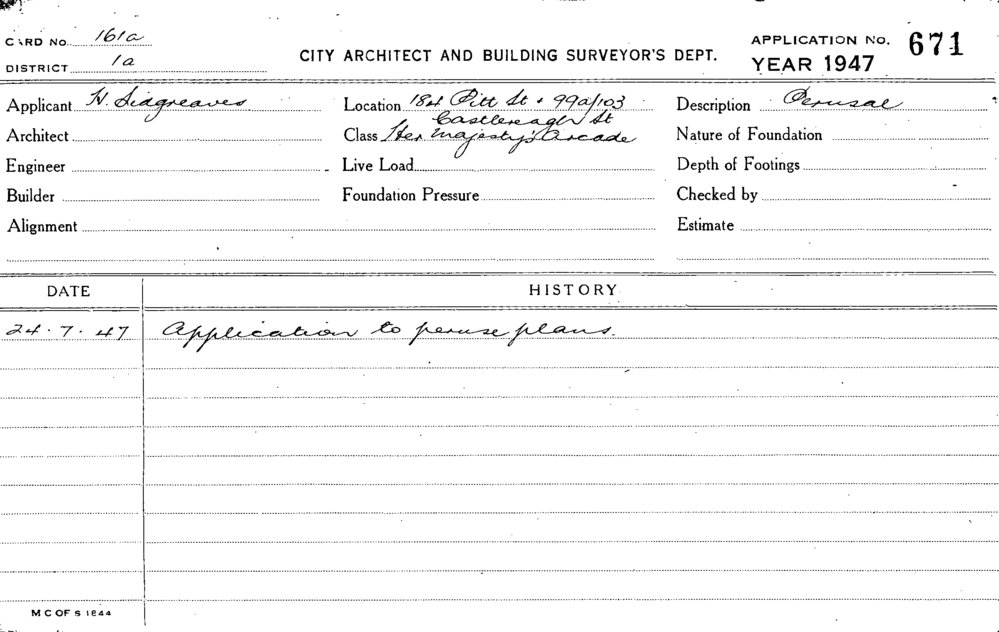 CARD No. 161a
DISTRICT 1a
CITY ARCHITECT AND BUILDING SURVEYOR'S DEPT.
APPLICATION No. 671
YEAR 1947
Applicant H. Sidgreaves
Location 184 Pitt St & 99a/103
Castlereagh St
Description Perusal
Architect
Class Her Majesty's Arcade
Nature of Foundation
Engineer
Live Load
Depth of Footings
Builder
Foundation Pressure
Checked by
Alignment
Estimate
DATE HISTORY
24.7.47 Application to peruse plans.
M C OF S 1844